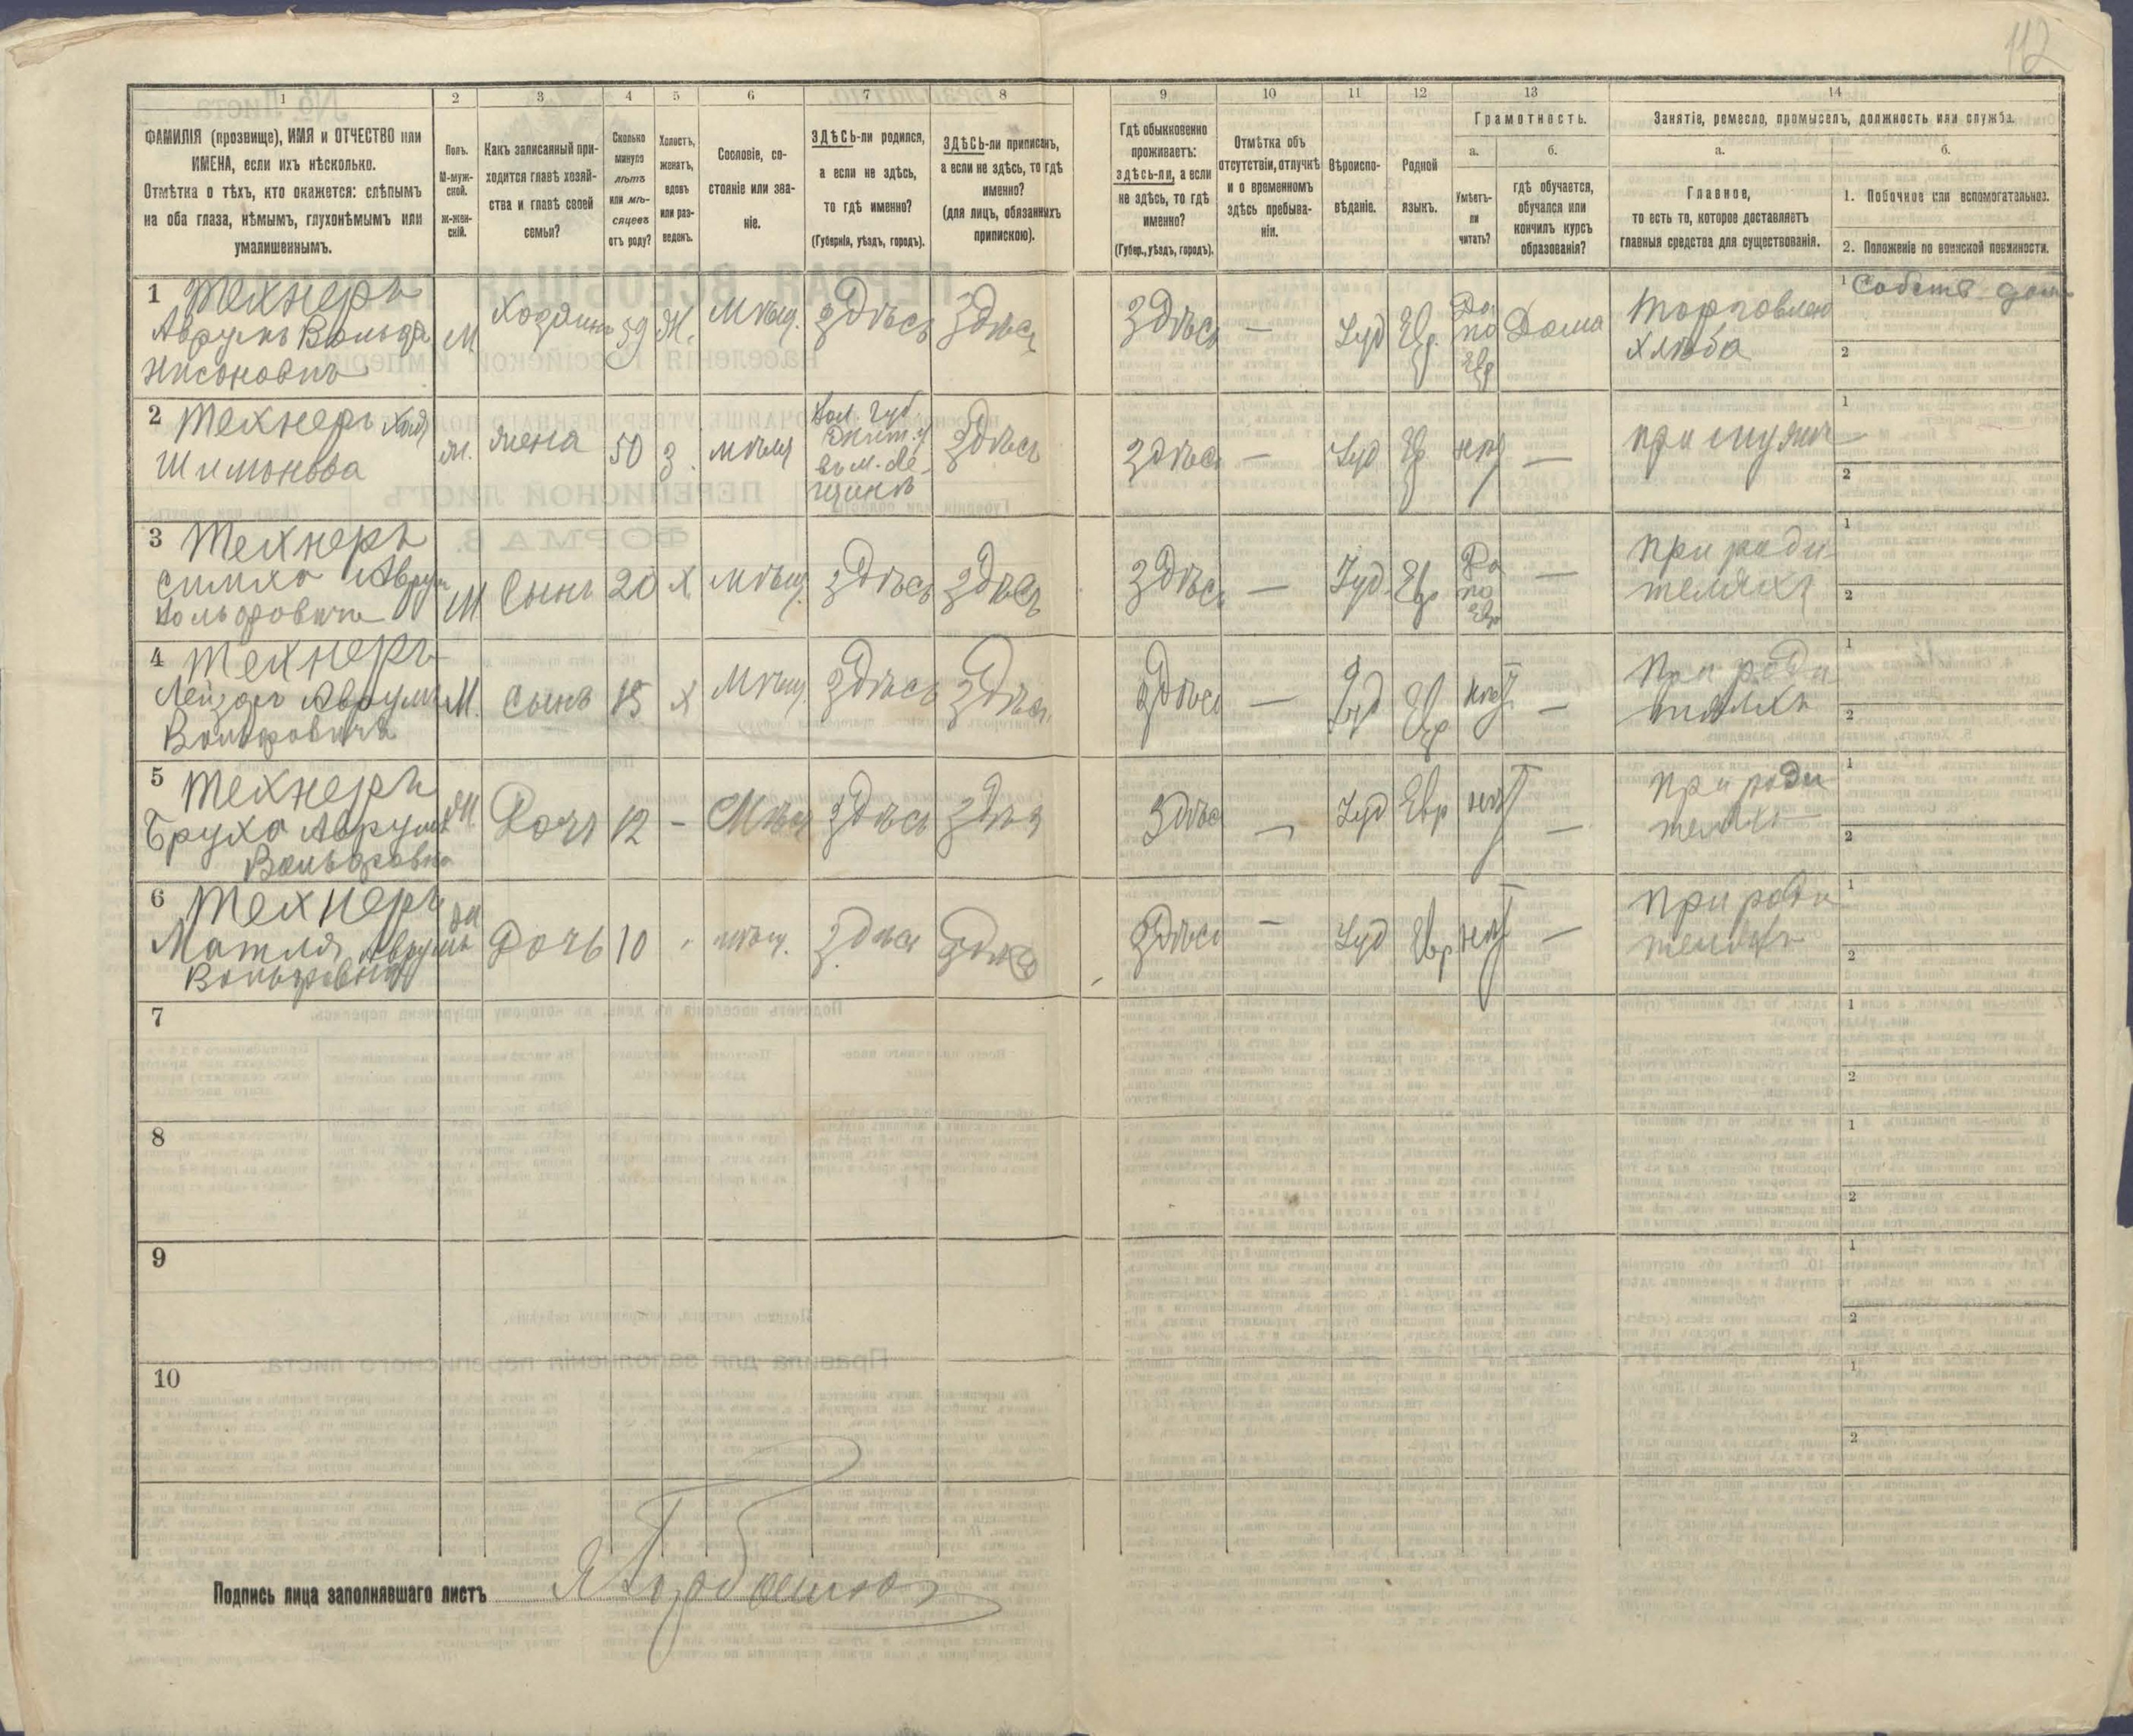 112
1
2
3
4
5
6
7
8
9
10
11
12
13
14
ФАМИЛІЯ (прозвище), ИМЯ и ОТЧЕСТВО или
ИМЕНА, если ихъ нѣсколько.
Отмѣтка о тѣхъ, кто окажется: слѣпымъ
на оба глаза, нѣмымъ, глухонѣмымъ или
умалишеннымъ.
Полъ.
М-муж-
ской.
Ж-жен-
скій.
Какъ записанный при-
ходится главѣ хозяй-
ства и главѣ своей
семьи?
Сколько
минуло
лѣтъ
или мѣ-
сяцевъ
отъ роду?
Холостъ,
женатъ,
вдовъ
или раз-
веденъ.
Сословіе, со-
стояніе или зва-
ніе.
ЗДѢСЬ-ли родился,
а если не здѣсь,
то гдѣ именно?
(Губернія, уѣздъ, городъ).
ЗДѢСЬ-ли приписанъ,
а если не здѣсь, то гдѣ
именно?
(для лицъ, обязанныхъ
припискою).
Гдѣ обыкновенно
проживаетъ:
здѣсь-ли, а если
не здѣсь, то гдѣ
именно?
(Губер., уѣздъ, городъ).
Отмѣтка объ
отсутствіи, отлучкѣ
и о временномъ
здѣсь пребыва-
ніи.
Вѣроиспо-
вѣданіе.
Родной
языкъ.
Грамотность.
а.
Умѣетъ-
ли
читать?
б.
гдѣ обучается,
обучался или
кончилъ курсъ
образованія?
Занятіе, ремесло, промыселъ, должность или служба.
а.
Главное,
то есть то, которое доставляетъ
главныя средства для существованія.
б.
1. Побочное или вспомогательное.
2. Положеніе по воинской повинности.
1 Технеръ
Аврумъ Вольфъ
Нисоновичъ
М
Хозяинъ
59
Ж.
Мѣщ.
Здѣсь
Здѣсь
Здѣсь
—
Іуд
Евр.
Да
по
Евр
Дома
Торговлею
хлѣба
1 Собств. домъ
2
2 Технеръ
Шимонова
Ж.
жена
50
З.
мѣщ
Вол. Губ
Здѣсь
Здѣсь
—
Іуд
Евр
нѣт
—
при мужѣ
1
2
3 Технеръ
Симха Аврум
Вольфовичъ
М
Сынъ
20
Х
Мѣщ.
Здѣсь
Здѣсь
Здѣсь
—
Іуд
Евр
Да
по
Евр
—
При роди
теляхъ
1
2
4 Технеръ
Лейзоръ Аврумъ
Вольфовичъ
М.
Сынъ
15
Х
Мѣщ.
Здѣсь
Здѣсь
Здѣсь
—
Іуд
Евр
нѣт
—
При роди
теляхъ
1
2
5 Технеръ
Бруха Аврумъ
Вольфовна
Ж
Дочь
12
—
Мѣщ
Здѣсь
Здѣсь
Здѣсь
—
Іуд
Евр
нѣт
—
При роди
теляхъ
1
2
6 Технеръ
Матля Аврумъ
Вольфовна
Ж
Дочь
10
мѣщ.
Здѣсь
Здѣсь
Здѣсь
—
Іуд
Евр
нѣт
—
При роди
теляхъ
1
2
7
1
2
8
1
2
9
1
2
10
1
2
Подпись лица заполнявшаго листъ